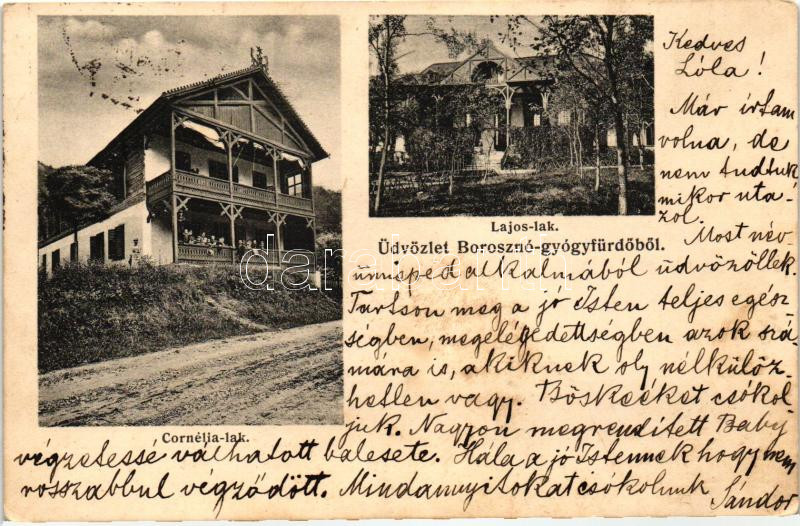 Kedves
Lóla!
Már írtam
volna, de
nem tudtuk
mikor uta-
zol.
Most név-
Lajos-lak.
Üdvözlet Boroszno-gyógyfürdőből.
ünneped alkalmából üdvözöllek.
Tartson meg a jó Isten teljes egész-
ségben, megelégedettségben azok szá-
mára is, a kiknek oly nélkülöz-
hetlen vagy. Böskééket csókol-
juk. Nagyon megrendített Baby
Cornélia-lak.
végzetessé válhatott balesete. Hála a jó Istennek hogy nem
rosszabbul végződött. Mindannyitokat csókolunk Sándor
darabanth.com